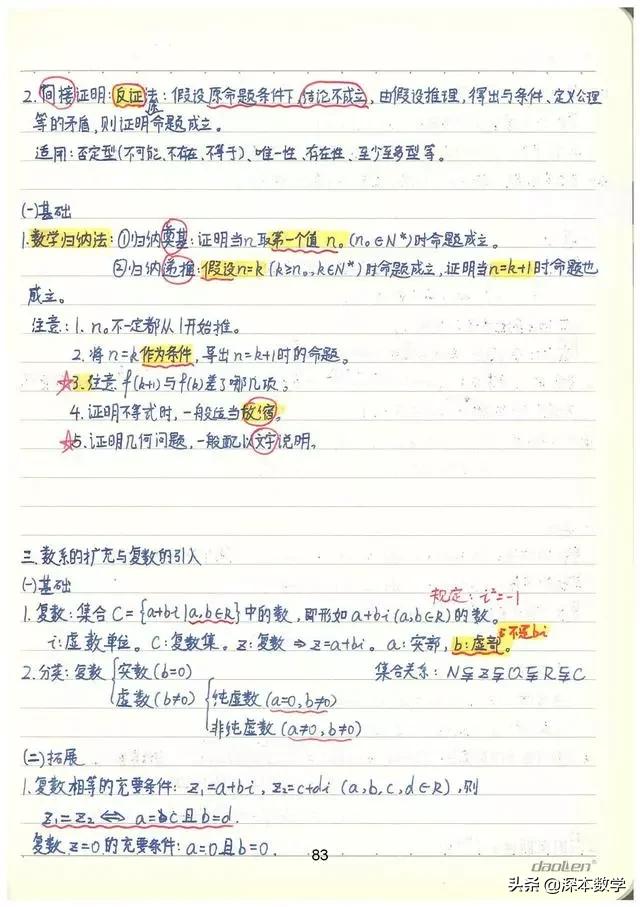 2.间接证明:反证法:假设原命题条件下,结论不成立,由假设推理,得出与条件、定义公理
等的矛盾,则证明命题成立。
适用:否定型(不可能、不存在、不等于)、唯一性、存在性、至少至多型等。
(一)基础
1.数学归纳法:①归纳奠基:证明当n取第一个值n₀(n₀∈N*)时命题成立。
②归纳递推:假设n=k(k≥n₀,k∈N*)时命题成立,证明当n=k+1时命题也
成立。
注意:1、n₀不一定都从1开始推。
2.将n=k作为条件,导出n=k+1时的命题。
☆3.注意f(k+1)与f(k)差了哪几项;
4.证明不等式时,一般适当放缩。
☆5.证明几何问题,一般配以文字说明。
三.数系的扩充与复数的引入
(一)基础
规定:i²=-1
1.复数:集合C={a+bi|a,b∈R}中的数,即形如a+bi(a,b∈R)的数。
不是bi
i:虚数单位。C:复数集。z:复数⇒z=a+bi。a:实部,b:虚部。
2.分类:复数{实数(b=0) 集合关系:N⫋Z⫋Q⫋R⫋C
虚数(b≠0){纯虚数(a=0,b≠0)
非纯虚数(a≠0,b≠0)
(二)拓展
1.复数相等的充要条件:z₁=a+bi,z₂=c+di(a,b,c,d∈R),则
z₁=z₂⇔a=c且b=d.
复数z=0的充要条件:a=0且b=0.
83
daolen®
头条@深本数学